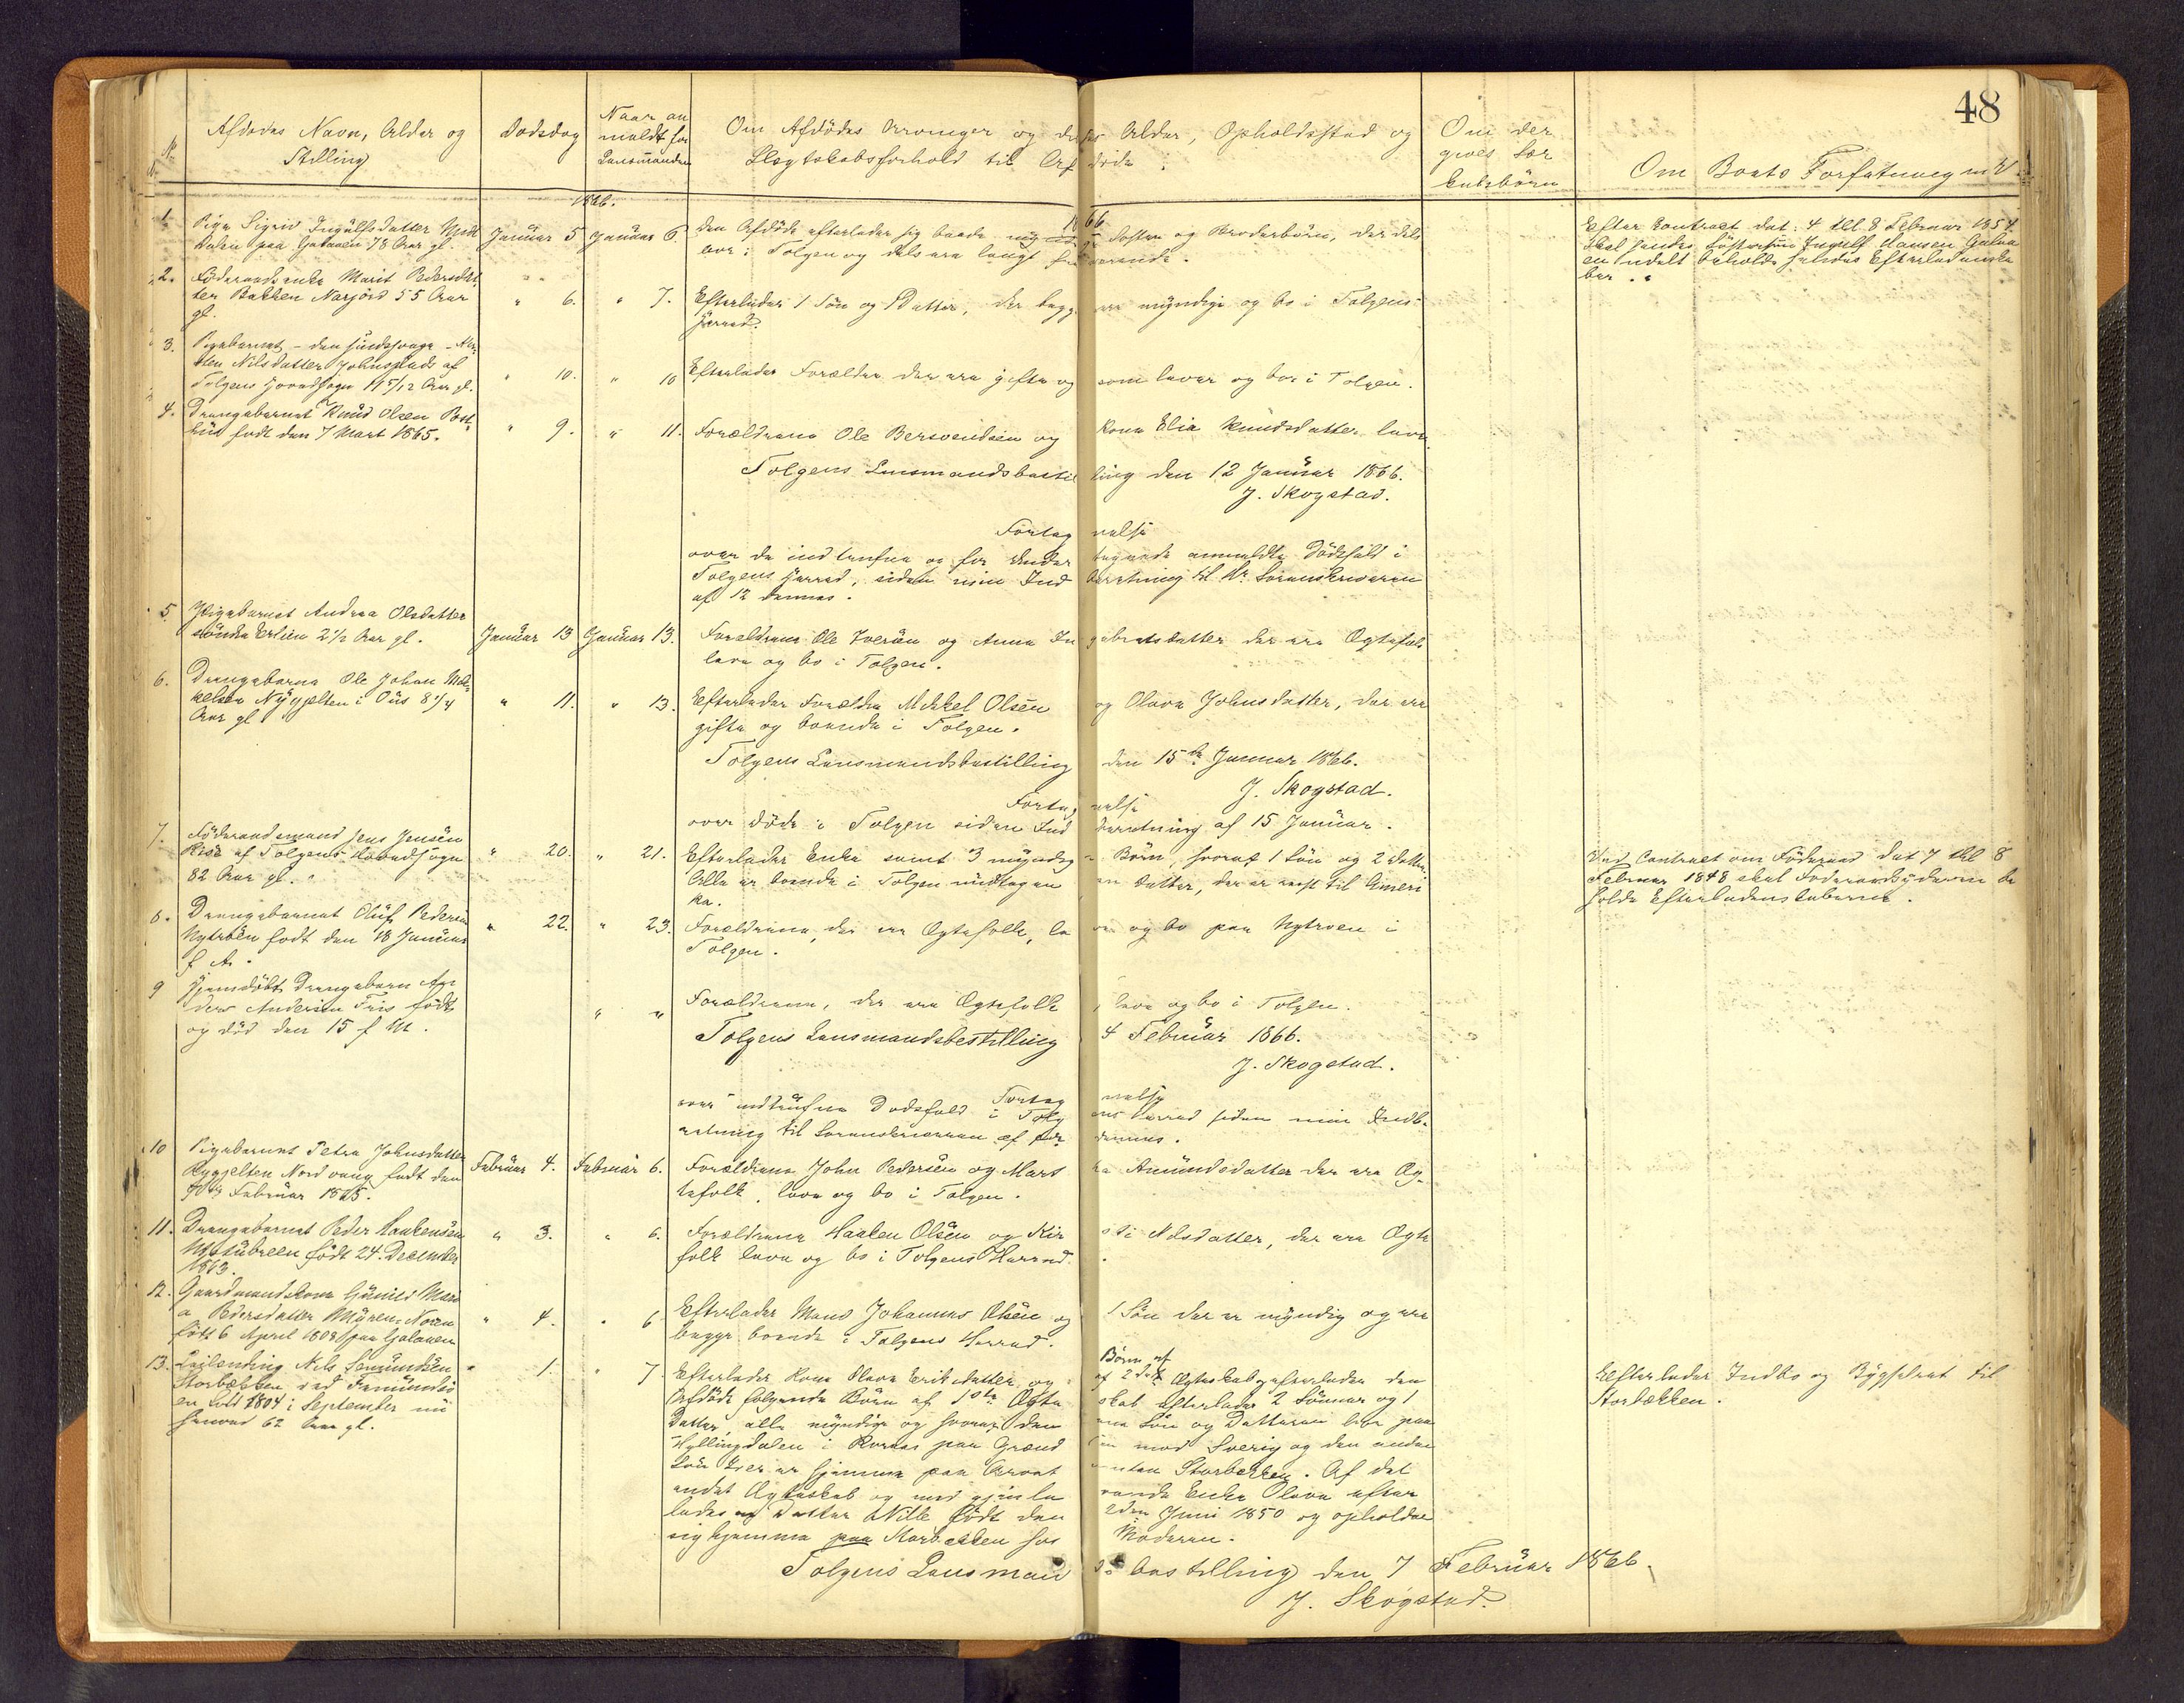 48
No
Afdødes Navn, Alder og
Stilling
Dødsdag
Naar an
meldt for
Lensmanden
Om Afdødes Arvinger og deres Alder, Opholdssted og
Slægtskabsforhold til Afdøde.
Om der
gives Sær
kulsbörn
Om Boets Forfatning m. V.
1866.
1866
1. Pige Sigrid Ingulfsdatter
paa Galaaen 78 Aar gl.
Januar 5 Januar 6.
den Afdøde efterlader sig baade myndige Søster og Broderbörn, der dels
bor i Tolgen og dels ere langt fraværende.
Efter Contract dat. 4 tbl 8 Februar 1854
skal hendes Søstersøn Ingulf Hansen Galaa
en udelt beholde hendes Efterladenska
ber.
2. Føderaadsenke Marit Pedersdat
ter Bakken Narjord 55 Aar
gl.
" 6. " 7.
Efterlader 1 Søn og 1 Datter, der begge ere myndige og bo i Tolgens
Herred.
3. Pigebarnet
Nilsdatter Johnsplads af
Tolgens Hovedsogn 11 5/12 Aar gl.
" 10. " 10
Efterlader Forældre der ere gifte og som lever og bor i Tolgen.
4. Drengebarnet Knud Olsen
født den 7 Mart 1865.
" 9. " 11.
Forældrene Ole Bersvendsen og Kone Elia Knudsdatter leve
Tolgens Lensmandsbestilling den 12 Januar 1866.
J. Skogstad.
Fortegnelse
over de indtrufne og for Undertegnede anmeldte Dødsfald i
Tolgens Herred, siden min Indberetning til Hr. Sorenskriveren
af 12 dennes.
5. Pigebarnet Andrea Olsdatter
Erlien 2 1/2 Aar gl.
Januar 13 Januar 13.
Forældrene Ole Iversen og Anne Ingebretsdatter der ere Ægtefolk
leve og bo i Tolgen.
6. Drengebarne Ole Johan Mik
kelsen Nygjelten i Øus 8 1/4
Aar gl
" 11. " 13.
Efterlader Forældre Mikkel Olsen og Olava Johnsdatter, der ere
gifte og boende i Tolgen.
Tolgens Lensmandsbestilling den 15de Januar 1866.
J. Skogstad.
Fortegnelse
over døde i Tolgen siden Indberetning af 15 Januar.
7. Føderaadsmand Jens Jensen
Riise af Tolgens Hovedsogn
82 Aar gl.
" 20. " 21.
Efterlader Enke samt 3 myndige Børn, hvoraf 1 Søn og 2 Døttre.
Alle er boende i Tolgen undtagen en Datter, der er reist til Ameri
ka.
Ved Contract om Føderaad dat 7 tbl 8
Februar 1848 skal Føderaadsyderen be
holde Efterladenskaberne.
8. Drengebarnet Oluf Pedersen
Nytrøen født den 18 Januar
f. A.
" 22. " 23.
Forældrene, der ere Ægtefolk, leve og bo paa Nytroen i
Tolgen.
9 Hjemdøbt Drengebarn An
ders Andersen født
og død den 15 f M.
" "
Forældrene, der ere Ægtefolk, leve og bo i Tolgen.
Tolgens Lensmandsbestilling 4 Februar 1866.
J. Skogstad.
Fortegnelse
over indtrufne Dødsfald i Tolgens Herred siden min Indbe
retning til Sorenskriveren af 4de dennes.
10 Pigebarnet Petra Johnsdatter
Nygjelten Nordvang født den
Februar 1865.
Februar 4. Februar 6.
Forældrene John Pedersen og Martha Amundsdatter der ere Æg
tefolk, leve og bo i Tolgen.
11. Drengebarnet Peder Haakensen
født 24. December
1863.
" 3. " 6.
Forældrene Haaken Olsen og Kirsti Nilsdatter, der ere Ægte
folk leve og bo i Tolgens Herred.
12. Gaardmandskone Gunild Mari
a Pedersdatter Myren
født 6 April 1808 paa Galaaen
" 4. " 6
Efterlader Mand Johannes Olsen og 1 Søn der er myndig og ere
begge boende i Tolgens Herred.
13. Leilending Nils Semundsen
Storbekken ved Femundsø
en født 1804 i September nu
henved 62 Aar gl.
" 1. " 7
Børn af
Efterlader Kone Olava Eriksdatter og af 2det Ægteskab efterlader den
Afdøde følgende Børn af 1ste Ægteskab efterlader 2 Sønner og 1
Datter, alle myndige og hvoraf den ene Søn og Datteren bor paa
Hyllingdalen i Roraas paa Grændsen mod Sverig og den anden
Søn Iver er hjemme paa Storbekken. Af det
andet Ægteskab og med Enke Olava efter
lades en Datter Nille født den 2den Juni 1850 og opholder
sig hjemme paa Storbekken hos Moderen.
Efterlader Indbo og Bygselret til
Storbekken.
Tolgens Lensmandsbestilling den 7 Februar 1866.
J. Skogstad.